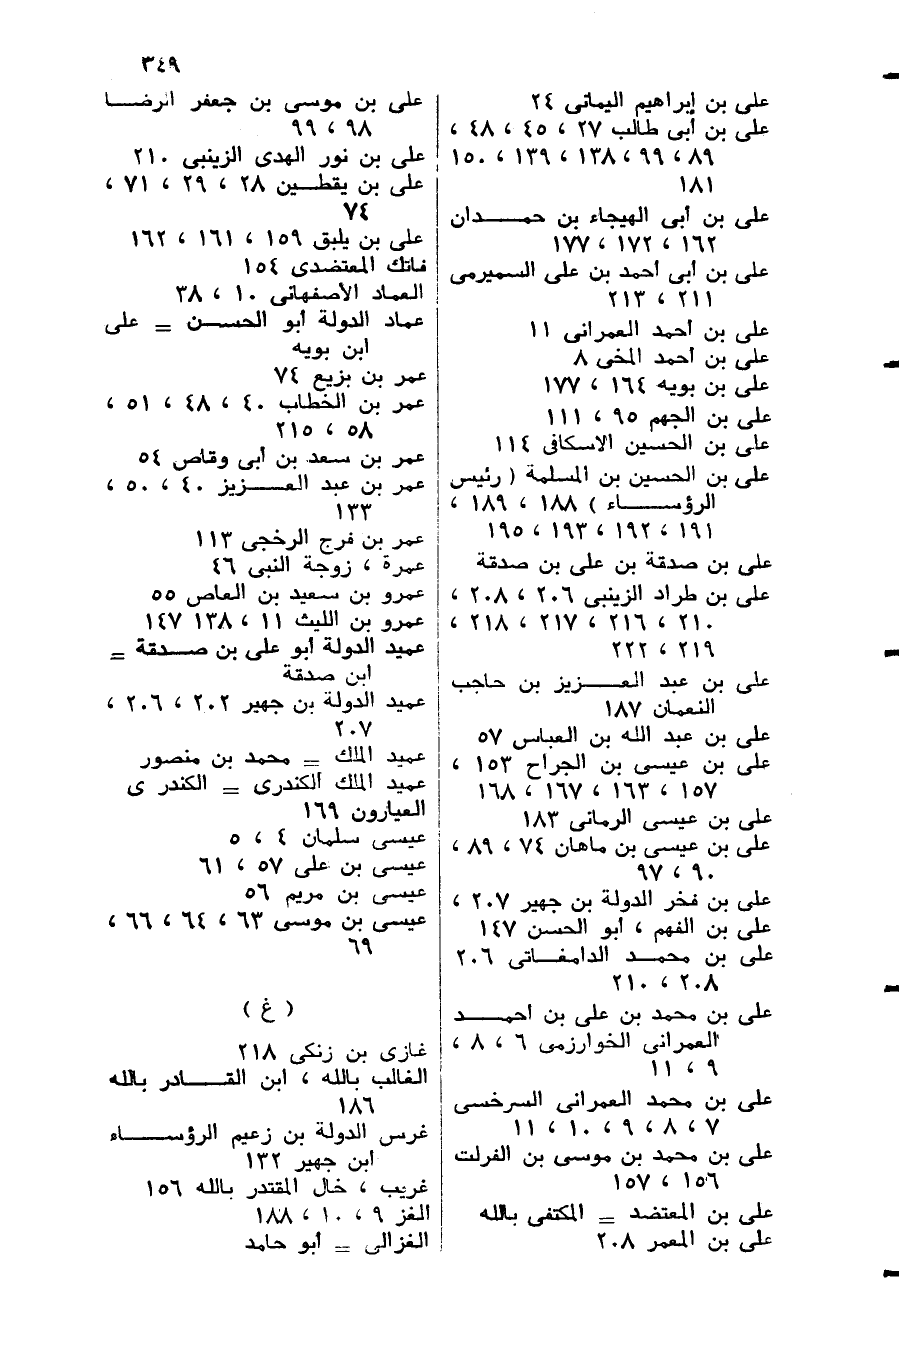 ٣٤٩
على بن إبراهيم اليمانى ٢٤
على بن أبى طالب ٢٧ ، ٤٥ ، ٤٨ ،
٨٩ ، ٩٩ ، ١٣٨ ، ١٣٩ ، ١٥٠
١٨١
على بن أبى الهيجاء بن حمــدان
١٦٢ ، ١٧٢ ، ١٧٧
على بن أبى أحمد بن على السميرمى
٢١١ ، ٢١٣
على بن أحمد العمرانى ١١
على بن أحمد المخى ٨
على بن بويه ١٦٤ ، ١٧٧
على بن الجهم ٩٥ ، ١١١
على بن الحسين الاسكافى ١١٤
على بن الحسين بن المسلمة ( رئيس
الرؤســـاء ) ١٨٨ ، ١٨٩ ،
١٩١ ، ١٩٢ ، ١٩٣ ، ١٩٥
على بن صدقة بن على بن صدقة
على بن طراد الزينبى ٢٠٦ ، ٢٠٨ ،
٢١٠ ، ٢١٦ ، ٢١٧ ، ٢١٨ ،
٢١٩ ، ٢٢٢
على بن عبد العــزيز بن حاجب
النعمان ١٨٧
على بن عبد الله بن العباس ٥٧
على بن عيسى بن الجراح ١٥٣ ،
١٥٧ ، ١٦٣ ، ١٦٧ ، ١٦٨
على بن عيسى الرمانى ١٨٣
على بن عيسى بن ماهان ٧٤ ، ٨٩ ،
٩٠ ، ٩٧
على بن فخر الدولة بن جهير ٢٠٧ ،
على بن الفهم ، أبو الحسن ١٤٧
على بن محمــد الدامغــانى ٢٠٦
٢٠٨ ، ٢١٠
على بن محمد بن على بن احمــد
العمرانى الخوارزمى ٦ ، ٨ ،
٩ ، ١١
على بن محمد العمرانى السرخسى
٧ ، ٨ ، ٩ ، ١٠ ، ١١
على بن محمد بن موسى بن الفرلت
١٥٦ ، ١٥٧
على بن المعتضد = المكتفى بالله
على بن المعمر ٢٠٨
على بن موسى بن جعفر الرضــا
٩٨ ، ٩٩
على بن نور الهدى الزينبى ٢١٠
على بن يقطــين ٢٨ ، ٢٩ ، ٧١ ،
٧٤
على بن يلبق ١٥٩ ، ١٦١ ، ١٦٢
فاتك المعتضدى ١٥٤
العماد الأصفهانى ١٠ ، ٣٨
عماد الدولة أبو الحســن = على
ابن بويه
عمر بن بزيع ٧٤
عمر بن الخطاب ٤٠ ، ٤٨ ، ٥١ ،
٥٨ ، ٢١٥
عمر بن سعد بن أبى وقاص ٥٤
عمر بن عبد العــزيز ٤٠ ، ٥٠ ،
١٣٣
عمر بن فرج الرخجى ١١٣
عمرة ، زوجة النبى ٤٦
عمرو بن سعيد بن العاص ٥٥
عمرو بن الليث ١١ ، ١٣٨ ١٤٧
عميد الدولة أبو على بن صــدقة =
ابن صدقة
عميد الدولة بن جهير ٢٠٢ ، ٢٠٦ ،
٢٠٧
عميد الملك = محمد بن منصور
عميد الملك الكندرى = الكندر ى
العيارون ١٦٩
عيسى سلمان ٤ ، ٥
عيسى بن على ٥٧ ، ٦١
عيسى بن مريم ٥٦
عيسى بن موسى ٦٣ ، ٦٤ ، ٦٦ ،
٦٩
( غ )
غازى بن زنكى ٢١٨
الغالب بالله ، ابن القــادر بالله
١٨٦
غرس الدولة بن زعيم الرؤســاء
ابن جهير ١٣٢
غريب ، خال المقتدر بالله ١٥٦
الغز ٩ ، ١٠ ، ١٨٨
الغزالى = أبو حامد